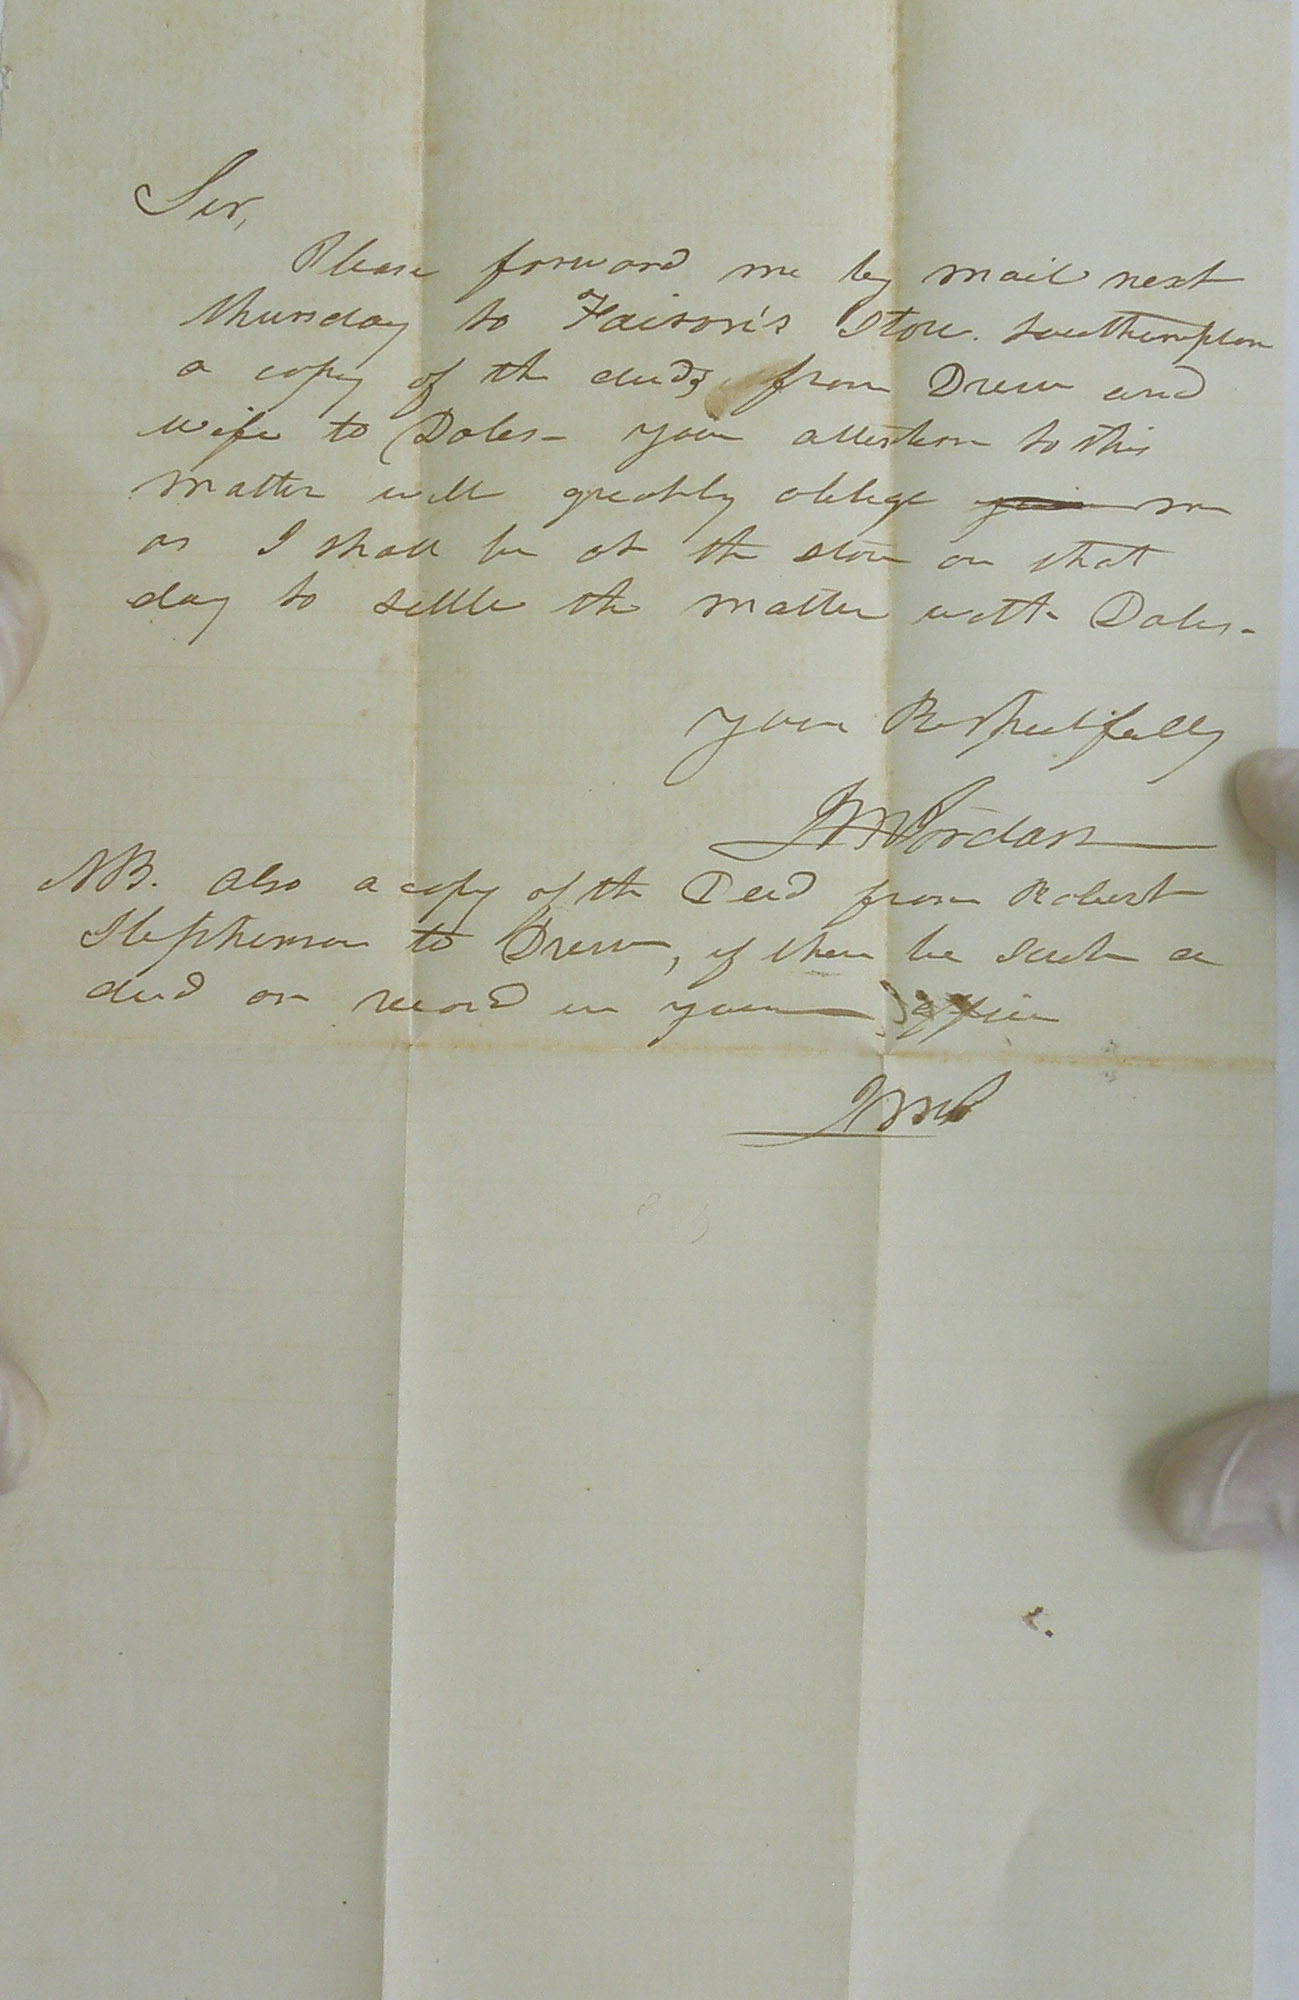 Sir,
Please forward me by mail next
thursday to Faison's Store. Southampton
a copy of the deeds from Drew and
wife to Doles - your attention to this
matter will greatly oblige me
as I shall be at the store on that
day to settle the matter with Doles -
your Respectfully
Jordan
NB. also a copy of the Deed from Robert
Stephenson to Drew, if there be such a
deed on record in your office